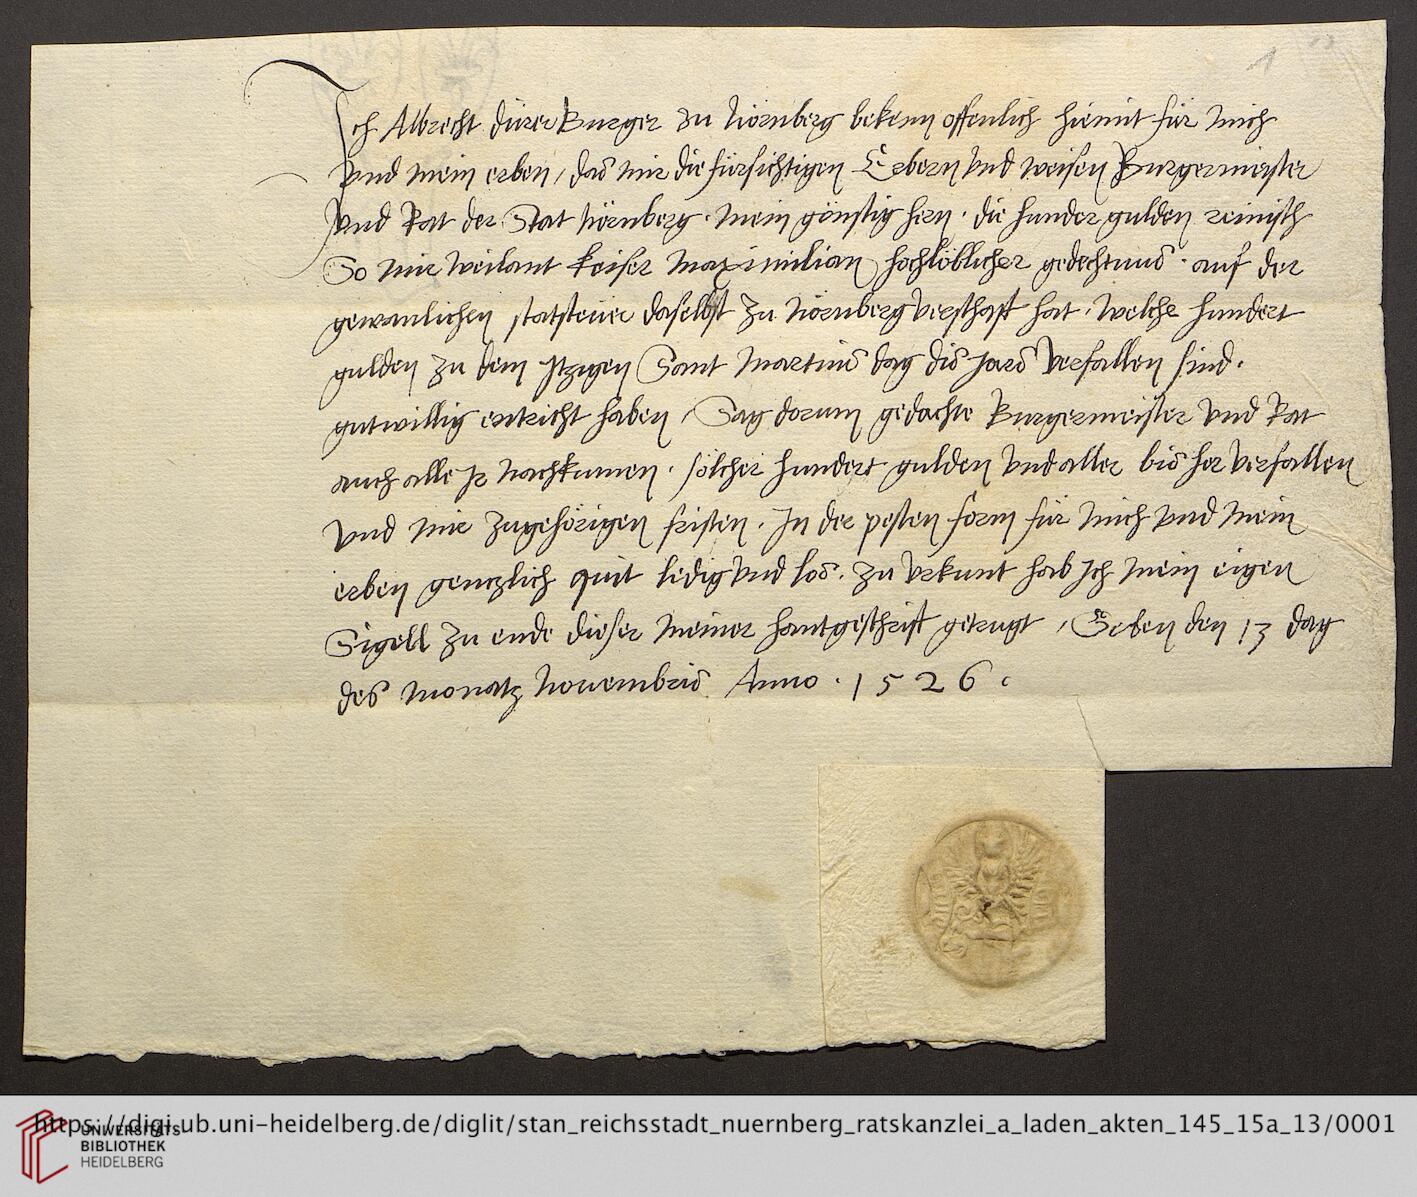 Ich Albrecht dürer Burger zu Nörnberg bekenn offenlich hiemit für mich
vnd mein erben, das mir die fürsichtigen Erbern vnd weisen Burgermeister
vnd Rat der Stat Nörnberg. mein gönstig hern. die hunder gulden reinisch
So mir weilant keiser maximilian hochlöblicher gedechtnus. auf der
gewanlichen statsteüer daselbst zu Nörnberg verschaft hat. welche hundert
gulden zu dem Itzigen Sant martins dag dis jars verfallen sind.
gutwillig entricht haben, Sag dorum gedachte Burgermeister vnd Rat
auch alle Ir nachkumen. sölcher hundert gulden vnd aller bis her verfallen
vnd mir zugehörigen fristen. In der pesten form für mich vnd mein
erben genczlich quit ledig vnd los. zu vrkunt hab Ich mein eigen
Sigell zu ende dieser meiner hantgeschrift getrugt, Geben den 13 dag
des monatz Nouembris Anno. 1526.
1
https://digi.ub.uni-heidelberg.de/diglit/stan_reichsstadt_nuernberg_ratskanzlei_a_laden_akten_145_15a_13/0001
UNIVERSITÄTS-
BIBLIOTHEK
HEIDELBERG